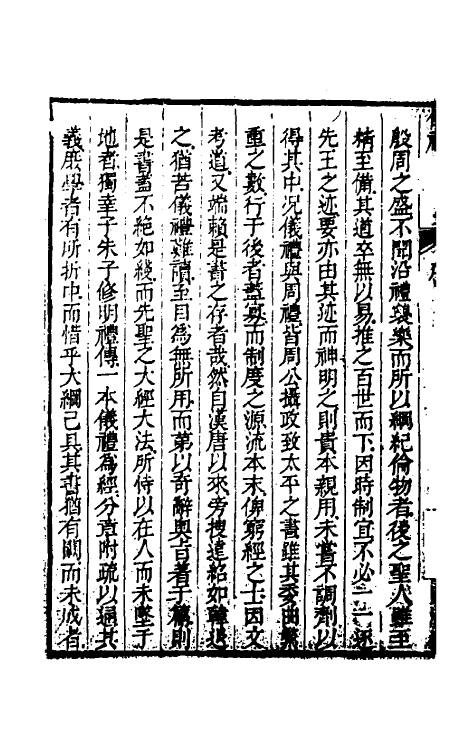 殷周之盛不聞沿禮襲樂而所以綱紀倫物者後之聖人雖至
精至備其道卒無以易推之百世而下因時制宜不必一一泥
先王之迹要亦由其迹而神明之則貴本親用未嘗不調劑以
得其中况儀禮與周禮皆周公攝政致太平之書雖其委曲繁
重之數行于後者葢寡而制度之源流本末俾窮經之士因文
考道又端賴是書之存者哉然自漢唐以來旁搜遠紹如韓退
之猶苦儀禮難讀至目為無所用而第以奇辭奥旨著于篇則
是書葢不絶如綫而先聖之大經大法所恃以在人而未墜于
地者獨幸子朱子修明禮傳一本儀禮為經分章附疏以通其
義庶學者有所折中而惜乎大綱已具其書猶有闕而未成者